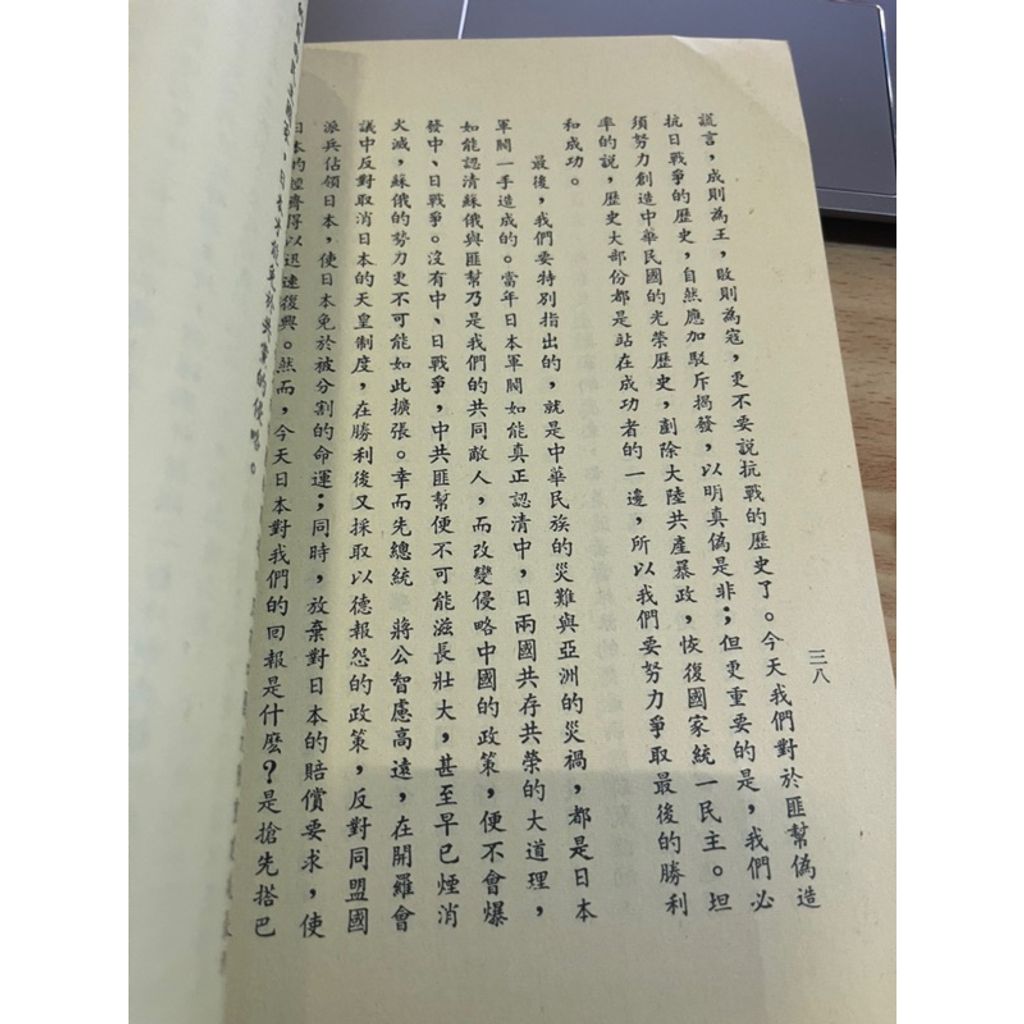 三八
謊言，成則為王，敗則為寇，更不要説抗戰的歷史了。今天我們對於匪幫偽造
抗日戰爭的歷史，自然應加駁斥揭發，以明真偽是非；但更重要的是，我們必
須努力創造中華民國的光榮歷史，剷除大陸共產暴政，恢復國家統一民主。坦
率的說，歷史大部份都是站在成功者的一邊，所以我們要努力爭取最後的勝利
和成功。
最後，我們要特別指出的，就是中華民族的災難與亞洲的災禍，都是日本
軍閥一手造成的。當年日本軍閥如能真正認清中，日兩國共存共榮的大道理，
如能認清蘇俄與匪幫乃是我們的共同敵人，而改變侵略中國的政策，便不會爆
發中、日戰爭。沒有中、日戰爭，中共匪幫便不可能滋長壯大，甚至早已煙消
火滅，蘇俄的勢力更不可能如此擴張。幸而先總統 蔣公智慮高遠，在開羅會
議中反對取消日本的天皇制度，在勝利後又採取以德報怨的政策，反對同盟國
派兵佔領日本，使日本免於被分割的命運；同時，放棄對日本的賠償要求，使
日本的經濟得以迅速復興。然而，今天日本對我們的回報是什麼？是搶先搭巴
的侵略。